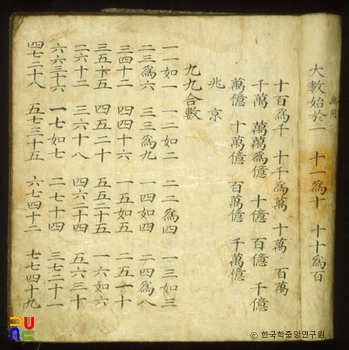 大數始於一 十一爲十 十十爲百
十百爲千 十千爲萬 十萬 百萬
千萬 萬萬爲億 十億 百億 千億
萬億 十萬億 百萬億 千萬億
兆 京
九九合數
一一如一 一二如二 二二爲四 一三如三
二三爲六 三三爲九 一四如四 二四爲八
三四十二 四四十六 一五如五 二五一十
三五十五 四五二十 五五二十五 一六如六
二六十二 三六十八 四六二十四 五六三十
六六三十六 一七如七 二七十四 三七二十一
四七二十八 五七三十五 六七四十二 七七四十九
한국학중앙연구원